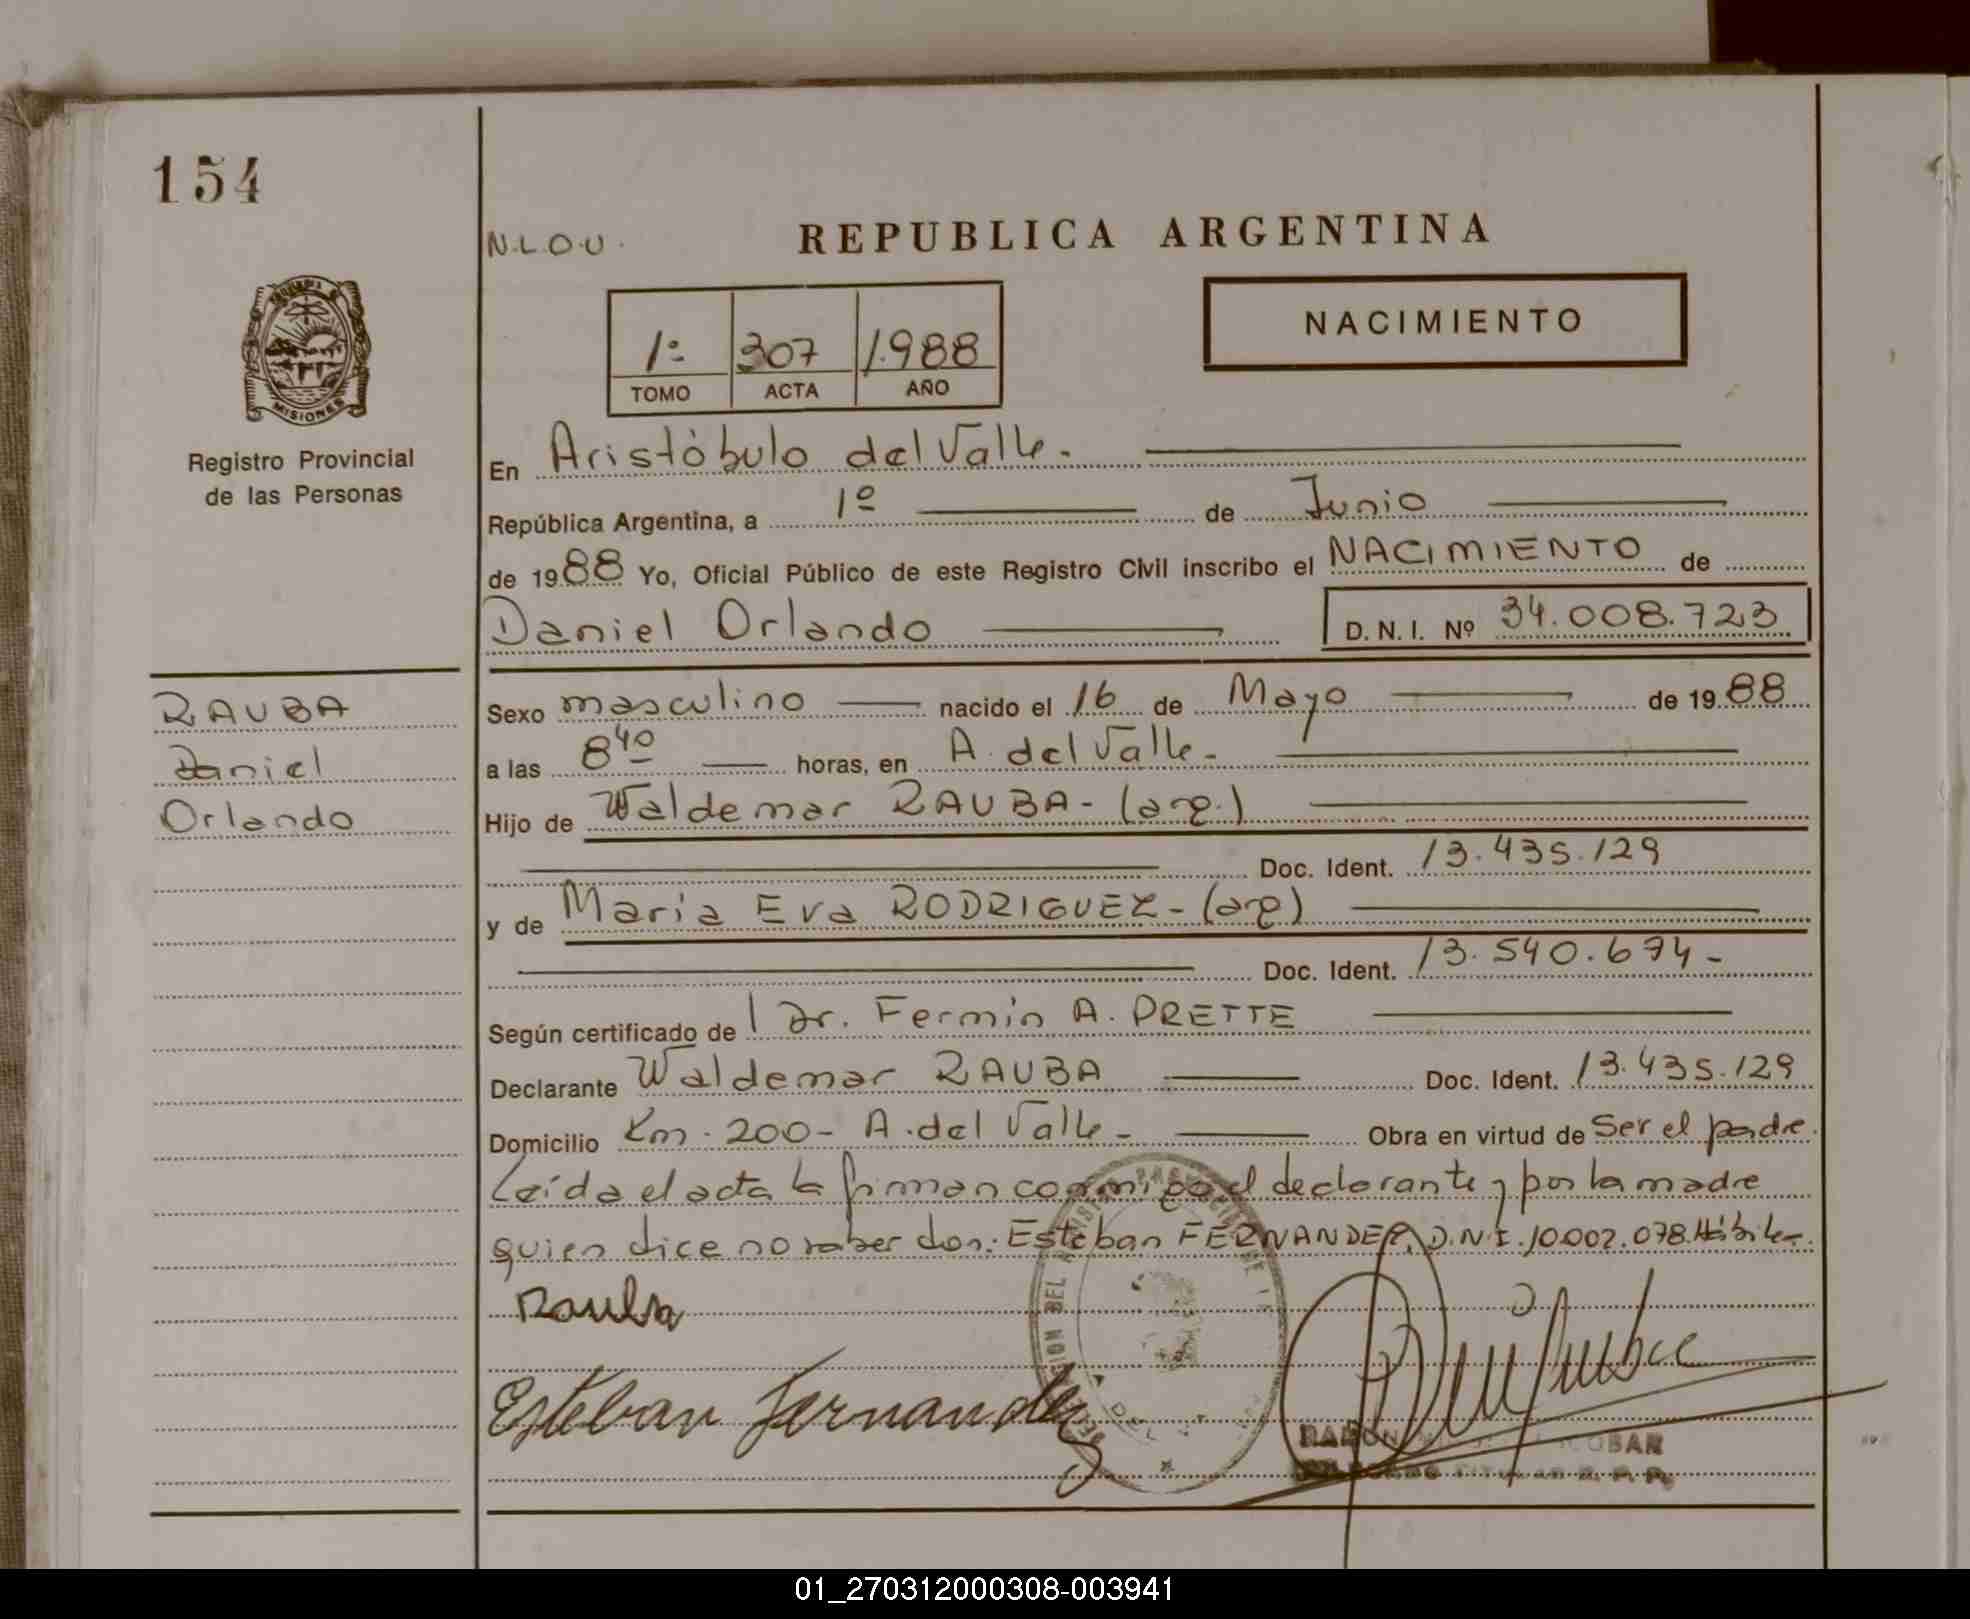 154
N.L.O.U.
REPUBLICA ARGENTINA
NACIMIENTO
1º 307 1.988
TOMO ACTA AÑO
MISIONES
Registro Provincial
de las Personas
En Aristóbulo del Valle.
República Argentina, a 1º de Junio
de 1988 Yo, Oficial Público de este Registro Civil inscribo el NACIMIENTO de
Daniel Orlando D. N. I. Nº 34.008.723
RAUBA
Daniel
Orlando
Sexo masculino nacido el 16 de Mayo de 1988
a las 8 40 horas, en A. del Valle.
Hijo de Waldemar RAUBA - (arg.)
Doc. Ident. 13.435.129
y de María Eva RODRIGUEZ - (arg)
Doc. Ident. 13.540.674-
Según certificado de Dr. Fermín A. PRETTE
Declarante Waldemar RAUBA Doc. Ident. 13.435.129
Domicilio Km. 200 - A. del Valle - Obra en virtud de Ser el padre.
Leída el acta la firman conmigo el declarante y por la madre
quien dice no saber don: Esteban FERNANDEZ, D.N.I. 10.002.078. Hábiles.
Rauba
Esteban Fernandez
DEL
ESCOBAR
TITULAR R. P. P.
01_270312000308-003941